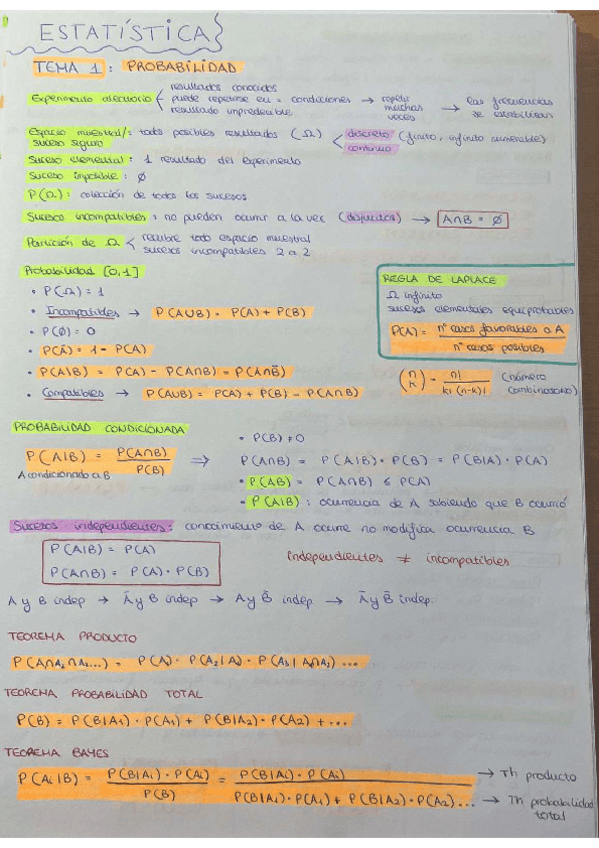 ESTATÍSTICA
TEMA 1: PROBABILIDAD
resultados conocidos
Experimento aleatorio < puede repetirse en = condiciones → repetir muchas veces → las frecuencias se estabilizan
resultado impredecible
Espacio muestral/suceso seguro: todos posibles resultados (Ω) < discreto (finito, infinito numerable)
continuo
Suceso elemental: 1 resultado del experimento
Suceso imposible: ∅
P(Ω): colección de todos los sucesos
Sucesos incompatibles: no pueden ocurrir a la vez (disjuntos) → A∩B = ∅
Partición de Ω < recubre todo espacio muestral
sucesos incompatibles 2 a 2
Probabilidad [0,1]
• P(Ω) = 1
• Incompatibles → P(A∪B) = P(A) + P(B)
• P(∅) = 0
• P(Ā) = 1 - P(A)
• P(A|B) = P(A) - P(A∩B) = P(A∩B̄)
• Compatibles → P(A∪B) = P(A) + P(B) - P(A∩B)
REGLA DE LAPLACE
Ω infinito
sucesos elementales equiprobables
P(A) = nº casos favorables a A / nº casos posibles
(n k) = n! / k! (n-k)! (número combinatorio)
PROBABILIDAD CONDICIONADA
P(A|B) = P(A∩B) / P(B) ⇒
A condicionado a B
• P(B) ≠ 0
P(A∩B) = P(A|B) · P(B) = P(B|A) · P(A)
• P(AB) = P(A∩B) ≤ P(A)
• P(A|B): ocurrencia de A sabiendo que B ocurrió
Sucesos independientes: conocimiento de A ocurre no modifica ocurrencia B
P(A|B) = P(A)
P(A∩B) = P(A) · P(B)
Independientes ≠ incompatibles
A y B indep → Ā y B indep → A y B̄ indep → Ā y B̄ indep.
TEOREMA PRODUCTO
P(A∩A₂∩A₃...) = P(A) · P(A₂|A) · P(A₃|A∩A₂) ...
TEOREMA PROBABILIDAD TOTAL
P(B) = P(B|A₁) · P(A₁) + P(B|A₂) · P(A₂) + ...
TEOREMA BAYES
P(Ai|B) = P(B|Ai) · P(Ai) / P(B) = P(B|Ai) · P(Ai) / P(B|A₁) · P(A₁) + P(B|A₂) · P(A₂) ...
→ Th producto
→ Th probabilidad total